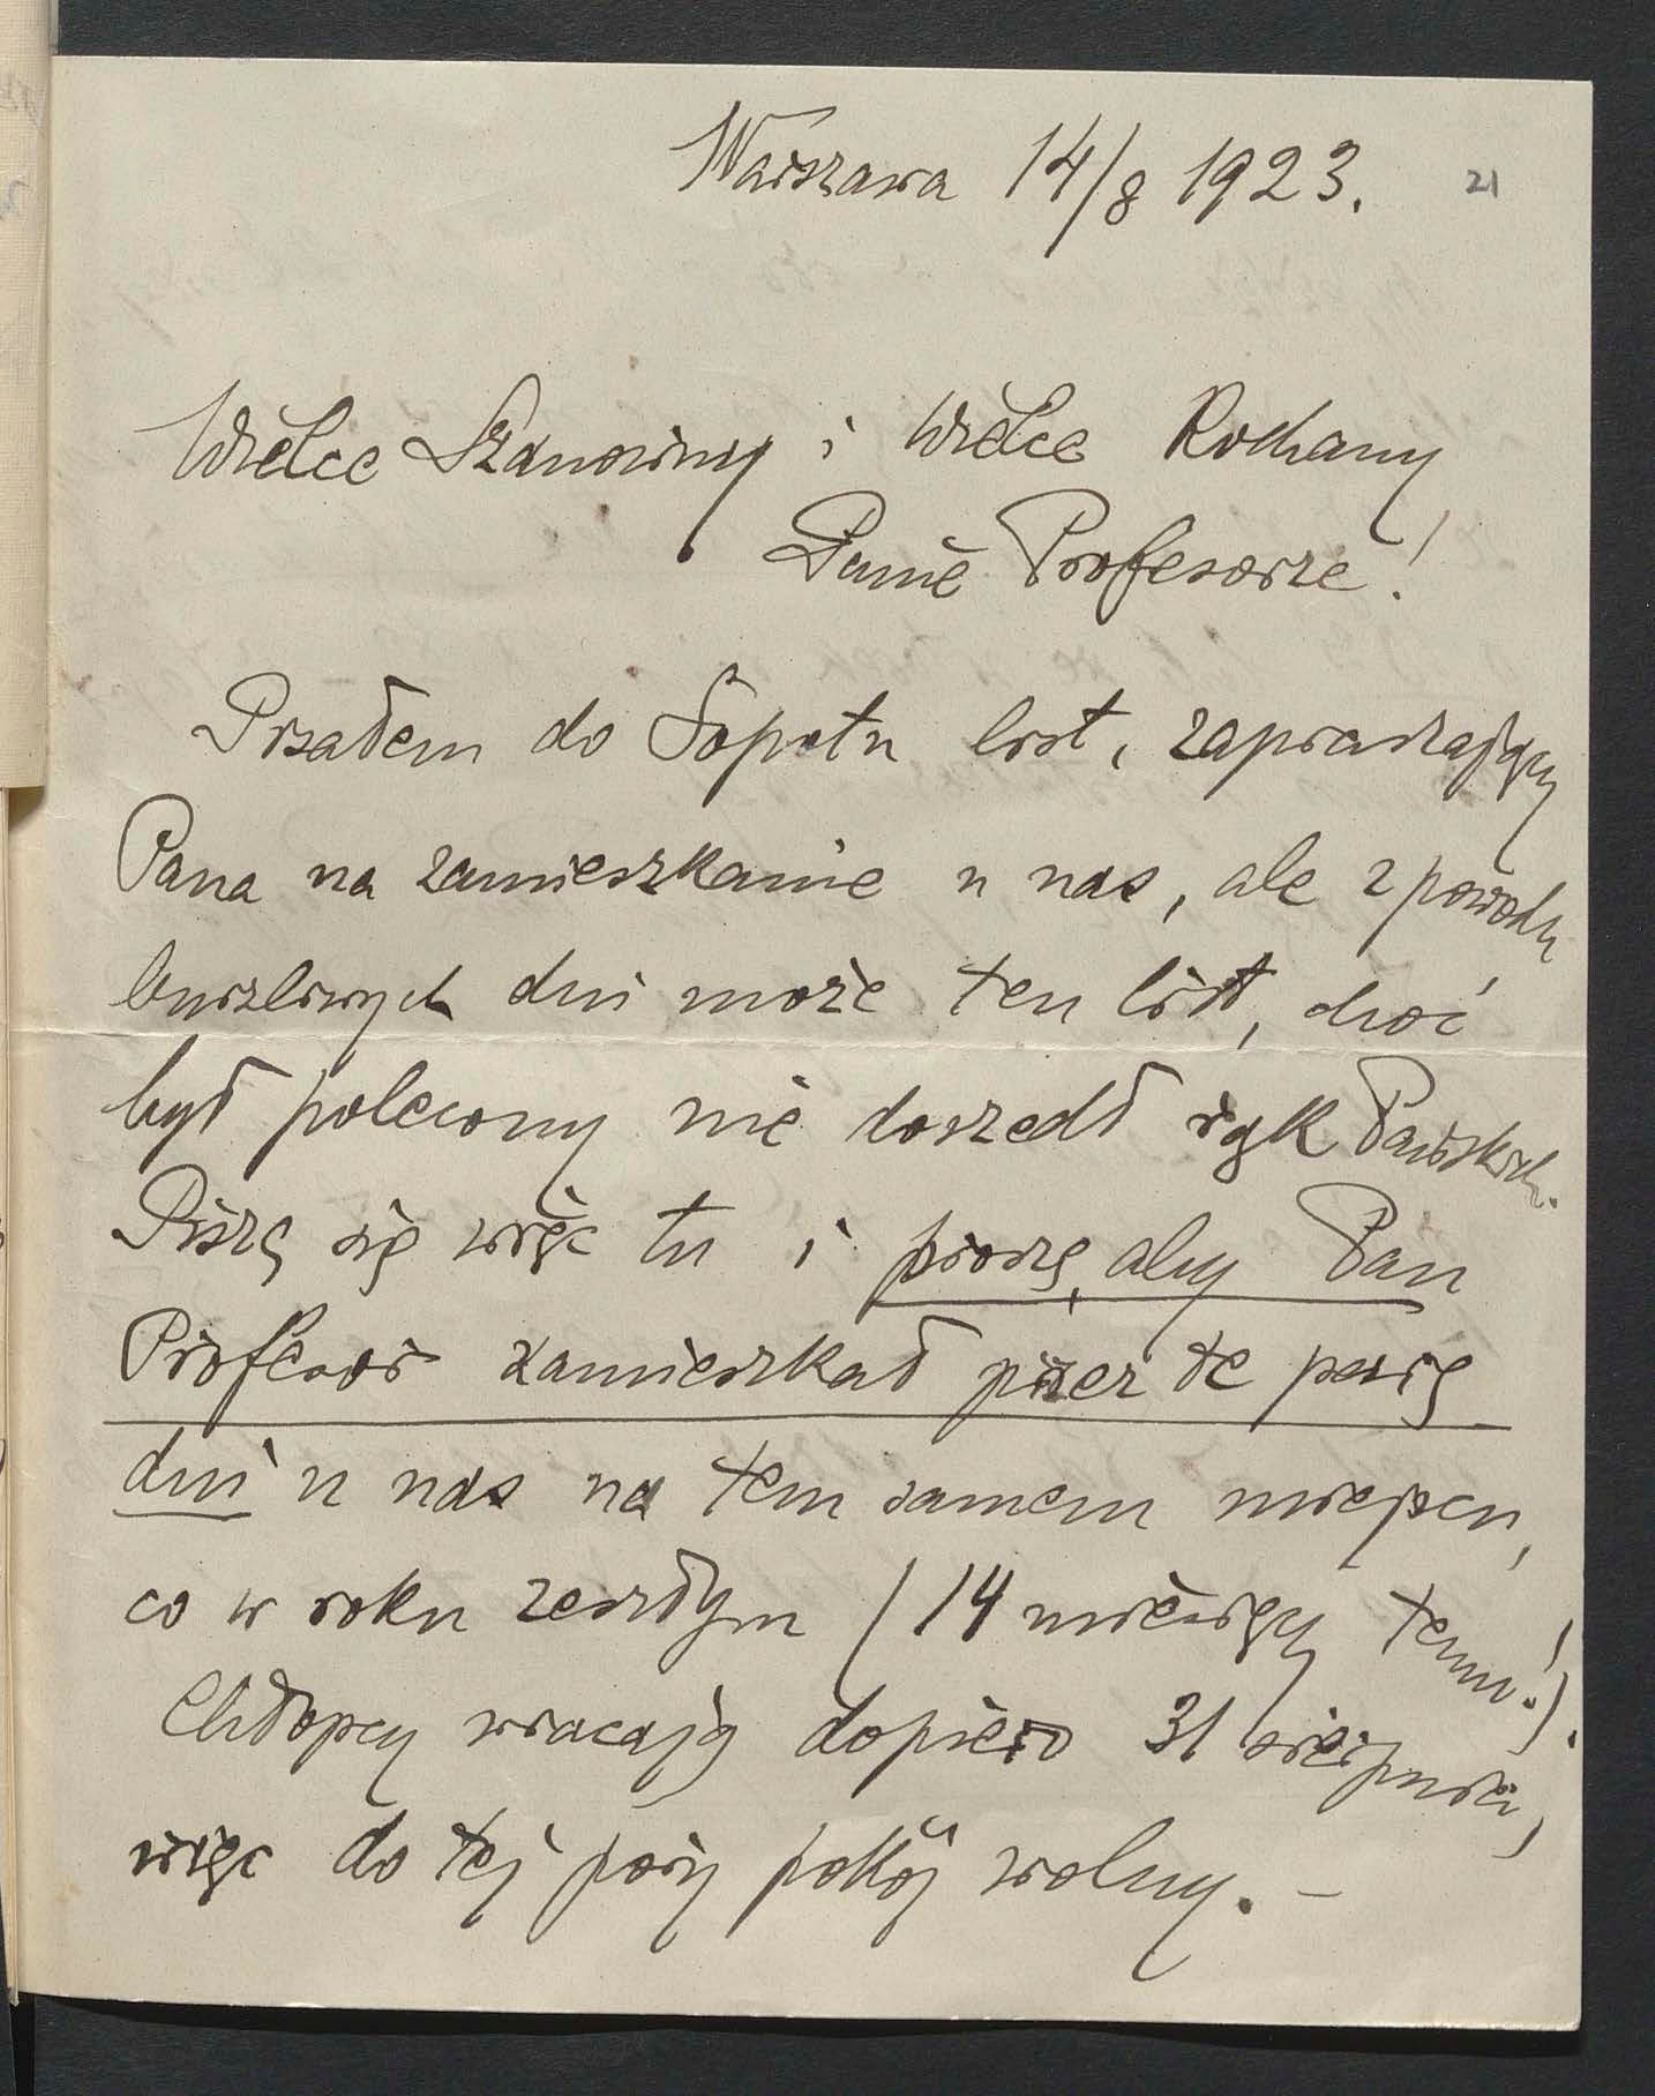 Warszawa 14/8 1923.
21
Wielce Szanowny i Wielce Kochany
Panie Profesorze!
Pisałem do Sopotu list, zapraszający
Pana na zamieszkanie u nas, ale z powodu
burzliwych dni może ten list, choć
był polecony nie doszedł rąk Pańskich.
Piszę się więc tu i proszę, aby Pan
Profesor zamieszkał przez te parę
dni u nas na tem samem miejscu,
co w roku zeszłym (14 miesięcy temu!).
Chłopcy wracają dopiero 31 sierpnia,
więc do tej pory pokój wolny. –